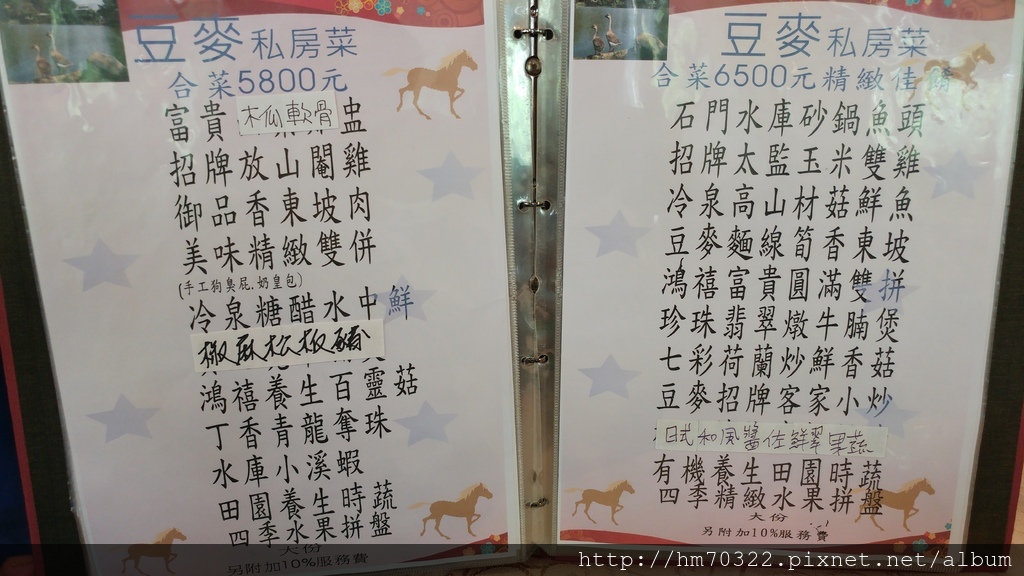 豆麥私房菜
合菜5800元
富貴木仙軟骨盅
招牌放山閹雞
御品香東坡肉
美味精緻雙併
(手工狗臭屁.奶皇包)
冷泉糖醋水中鮮
椒麻松板豬
鴻禧養生百靈菇
丁香青龍奪珠
水庫小溪蝦
田園養生時蔬
四季水果拼盤
大份
另附加10%服務費
豆麥私房菜
合菜6500元精緻佳餚
石門水庫砂鍋魚頭
招牌太監玉米雙雞
冷泉高山材菇鮮魚
豆麥麵線筍香東坡
鴻禧富貴圓滿雙拼
珍珠翡翠燉牛腩煲
七彩荷蘭炒鮮香菇
豆麥招牌客家小炒
日式和風醬佐鮮翠果蔬
有機養生田園時蔬
四季精緻水果拼盤
大份
另附加10%服務費
http://hm70322.pixnet.net/album